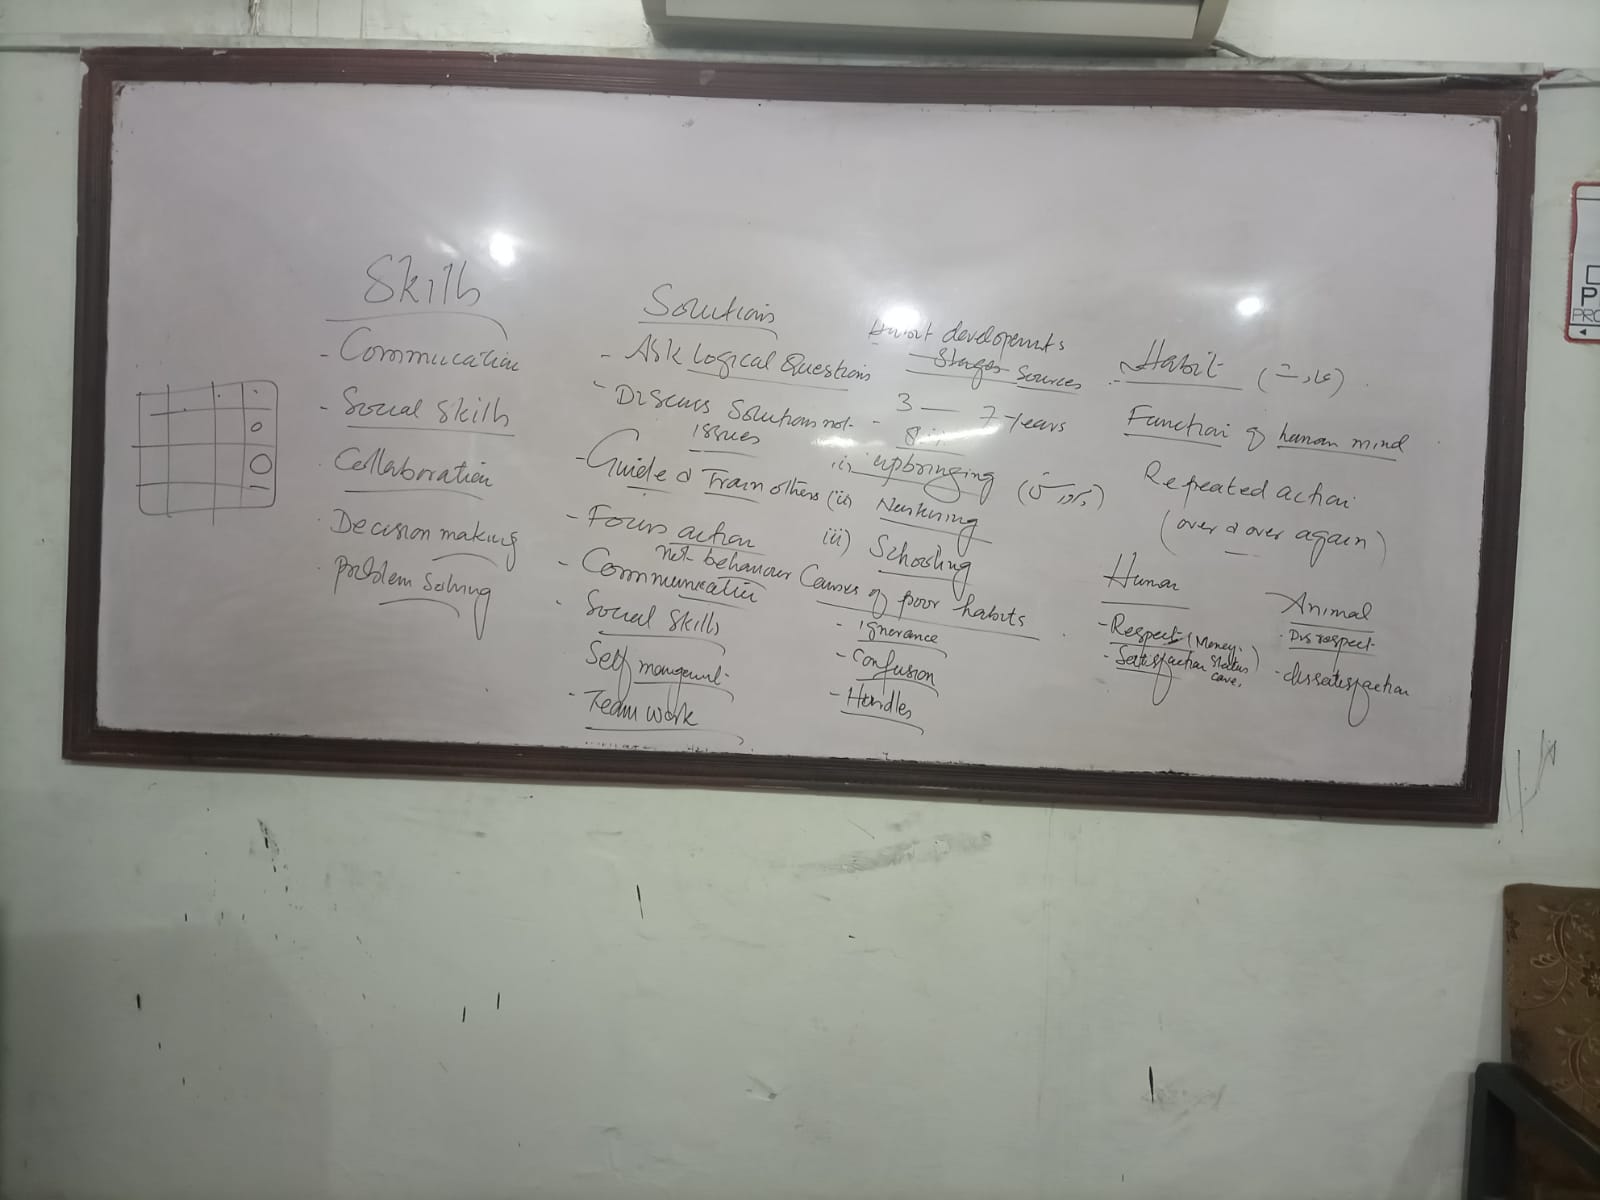 Skills
- Commucation
- Social Skills
Collaboration
Decision making
Problem Solving
Solutions
- Ask Logical Questions
- Discuss Solutions not
issues
- Guide & Train others
- Focus action
not behaviour
- Communication
Social Skills
Self
- Team work
Habit developments
Stages Sources
3 — 7 years
i) upbringing
(ii)
iii) Schooling
Causes of poor habits
- ignorance
- Confusion
- Hurdles
Habit (عادت)
Function of human mind
Repeated action
(over & over again)
Human
- Respect (Money,
- Satisfaction Status
care,
Animal
Disrespect
- dissatisfaction
P
PRO